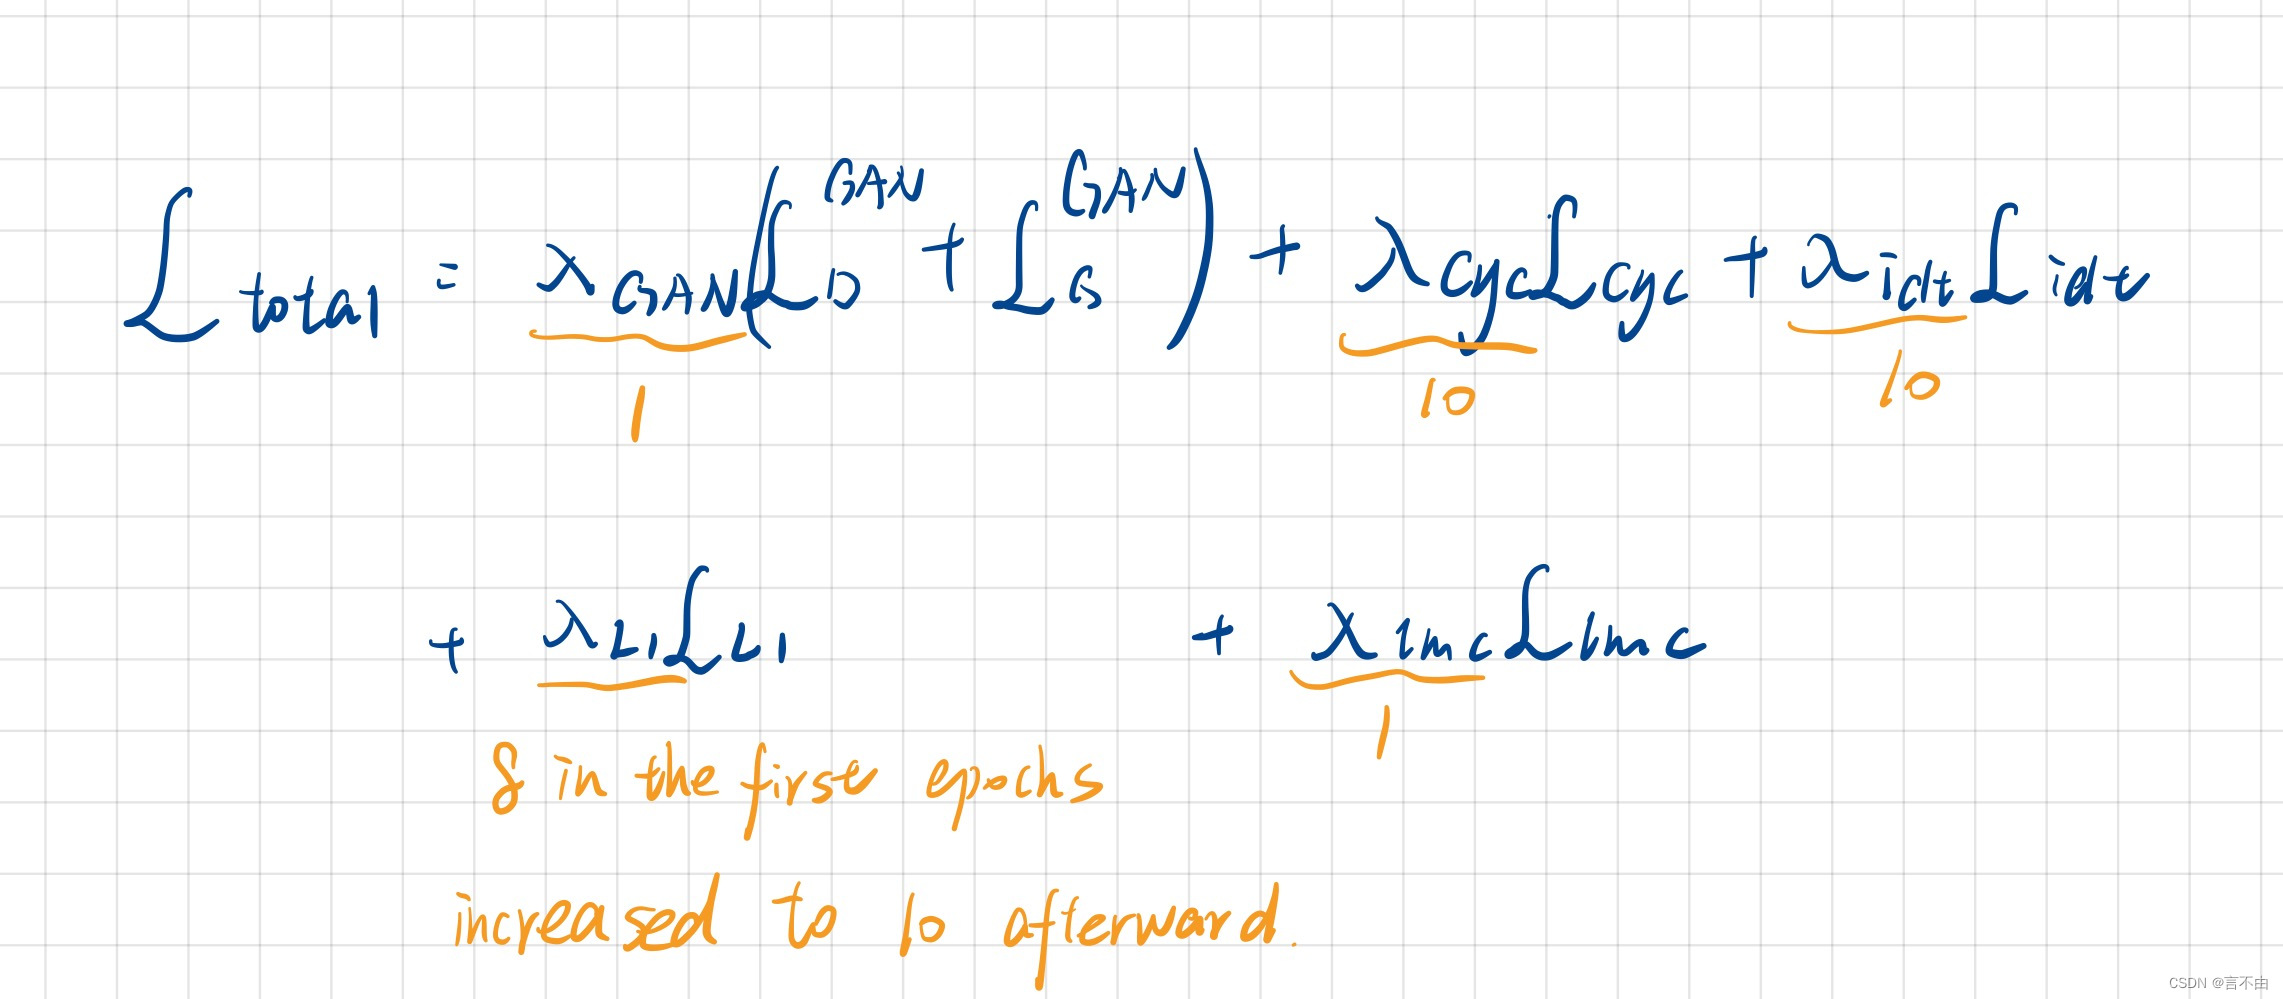 ℒ_total = λ_GAN(ℒ_D^GAN + ℒ_G^GAN) + λ_cyc ℒ_cyc + λ_idt ℒ_idt
1 10 10
+ λ_L1 ℒ_L1 + λ_lmc ℒ_lmc
1
8 in the first epochs
increased to 10 afterward.
CSDN @言不由